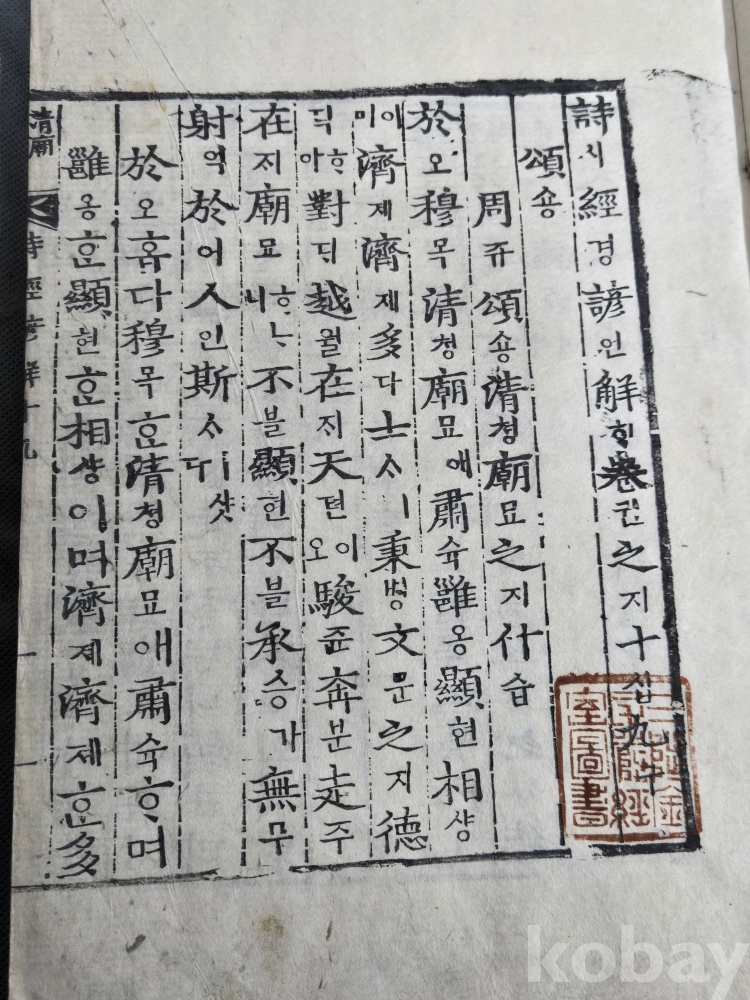 詩시經경諺언解ᄒᆡ卷권之지十십九구
頌숑
周쥬頌숑淸쳥廟묘之지什습
於오穆목淸쳥廟묘애肅슉雝옹顯현相샹
이미濟졔濟졔多다士ᄉᆞㅣ秉병文문之지德
덕ᄒᆞ야對ᄃᆡ越월在ᄌᆡ天텬이오駿쥰奔분走주
在ᄌᆡ廟묘ᄒᆞᄂᆞ니不블顯현不블承승가無무
射역於어人인斯ᄉᆞㅣ샷다
於오홉다穆목ᄒᆞᆫ淸쳥廟묘애肅슉ᄒᆞ며
雝옹ᄒᆞᆫ顯현ᄒᆞᆫ相샹이며濟졔濟졔ᄒᆞᆫ多
淸廟
詩經諺解十九
一
室圖書
kobay